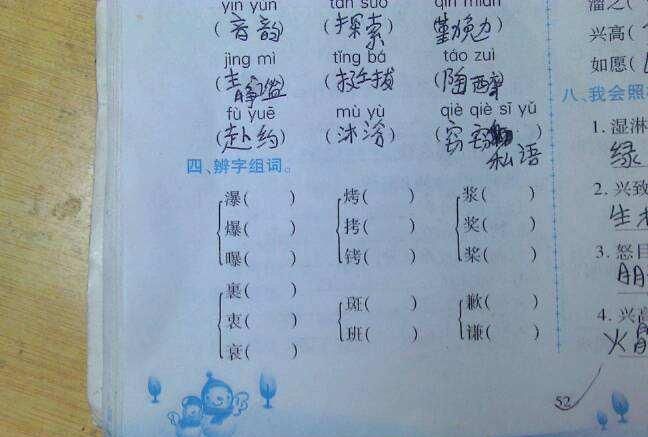 yīn yùn tàn suǒ qín miǎn
(音韵) (探索) (勤勉)
jìng mì tǐng bá táo zuì
(静谧) (挺拔) (陶醉)
fù yuē mù yù qiè qiè sī yǔ
(赴约) (沐浴) (窃窃私语)
四、辨字组词。
瀑( ) 烤( ) 浆( )
爆( ) 拷( ) 奖( )
曝( ) 铐( ) 桨( )
裹( )
衷( ) 斑( ) 歉( )
衰( ) 班( ) 谦( )
52
溜之(
兴高(
如愿(
八、我会照
1. 湿淋
绿
2. 兴致
生
3. 怒目
4. 兴高
火